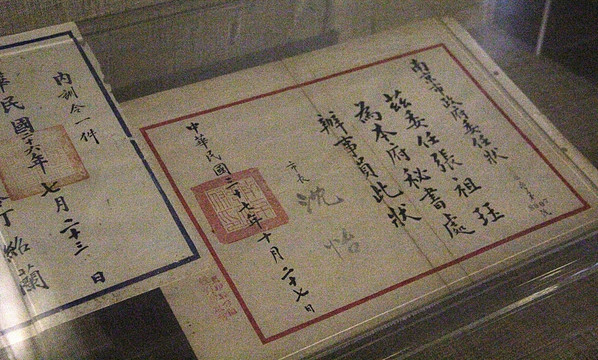 南京市政府委任狀
茲委任張祖珏
為本府秘書處
辦事員此狀
市長 沈怡
中華民國三十七年十月二十七日
內訓令一件
華民國十六年七月二十三日
丁紹蘭